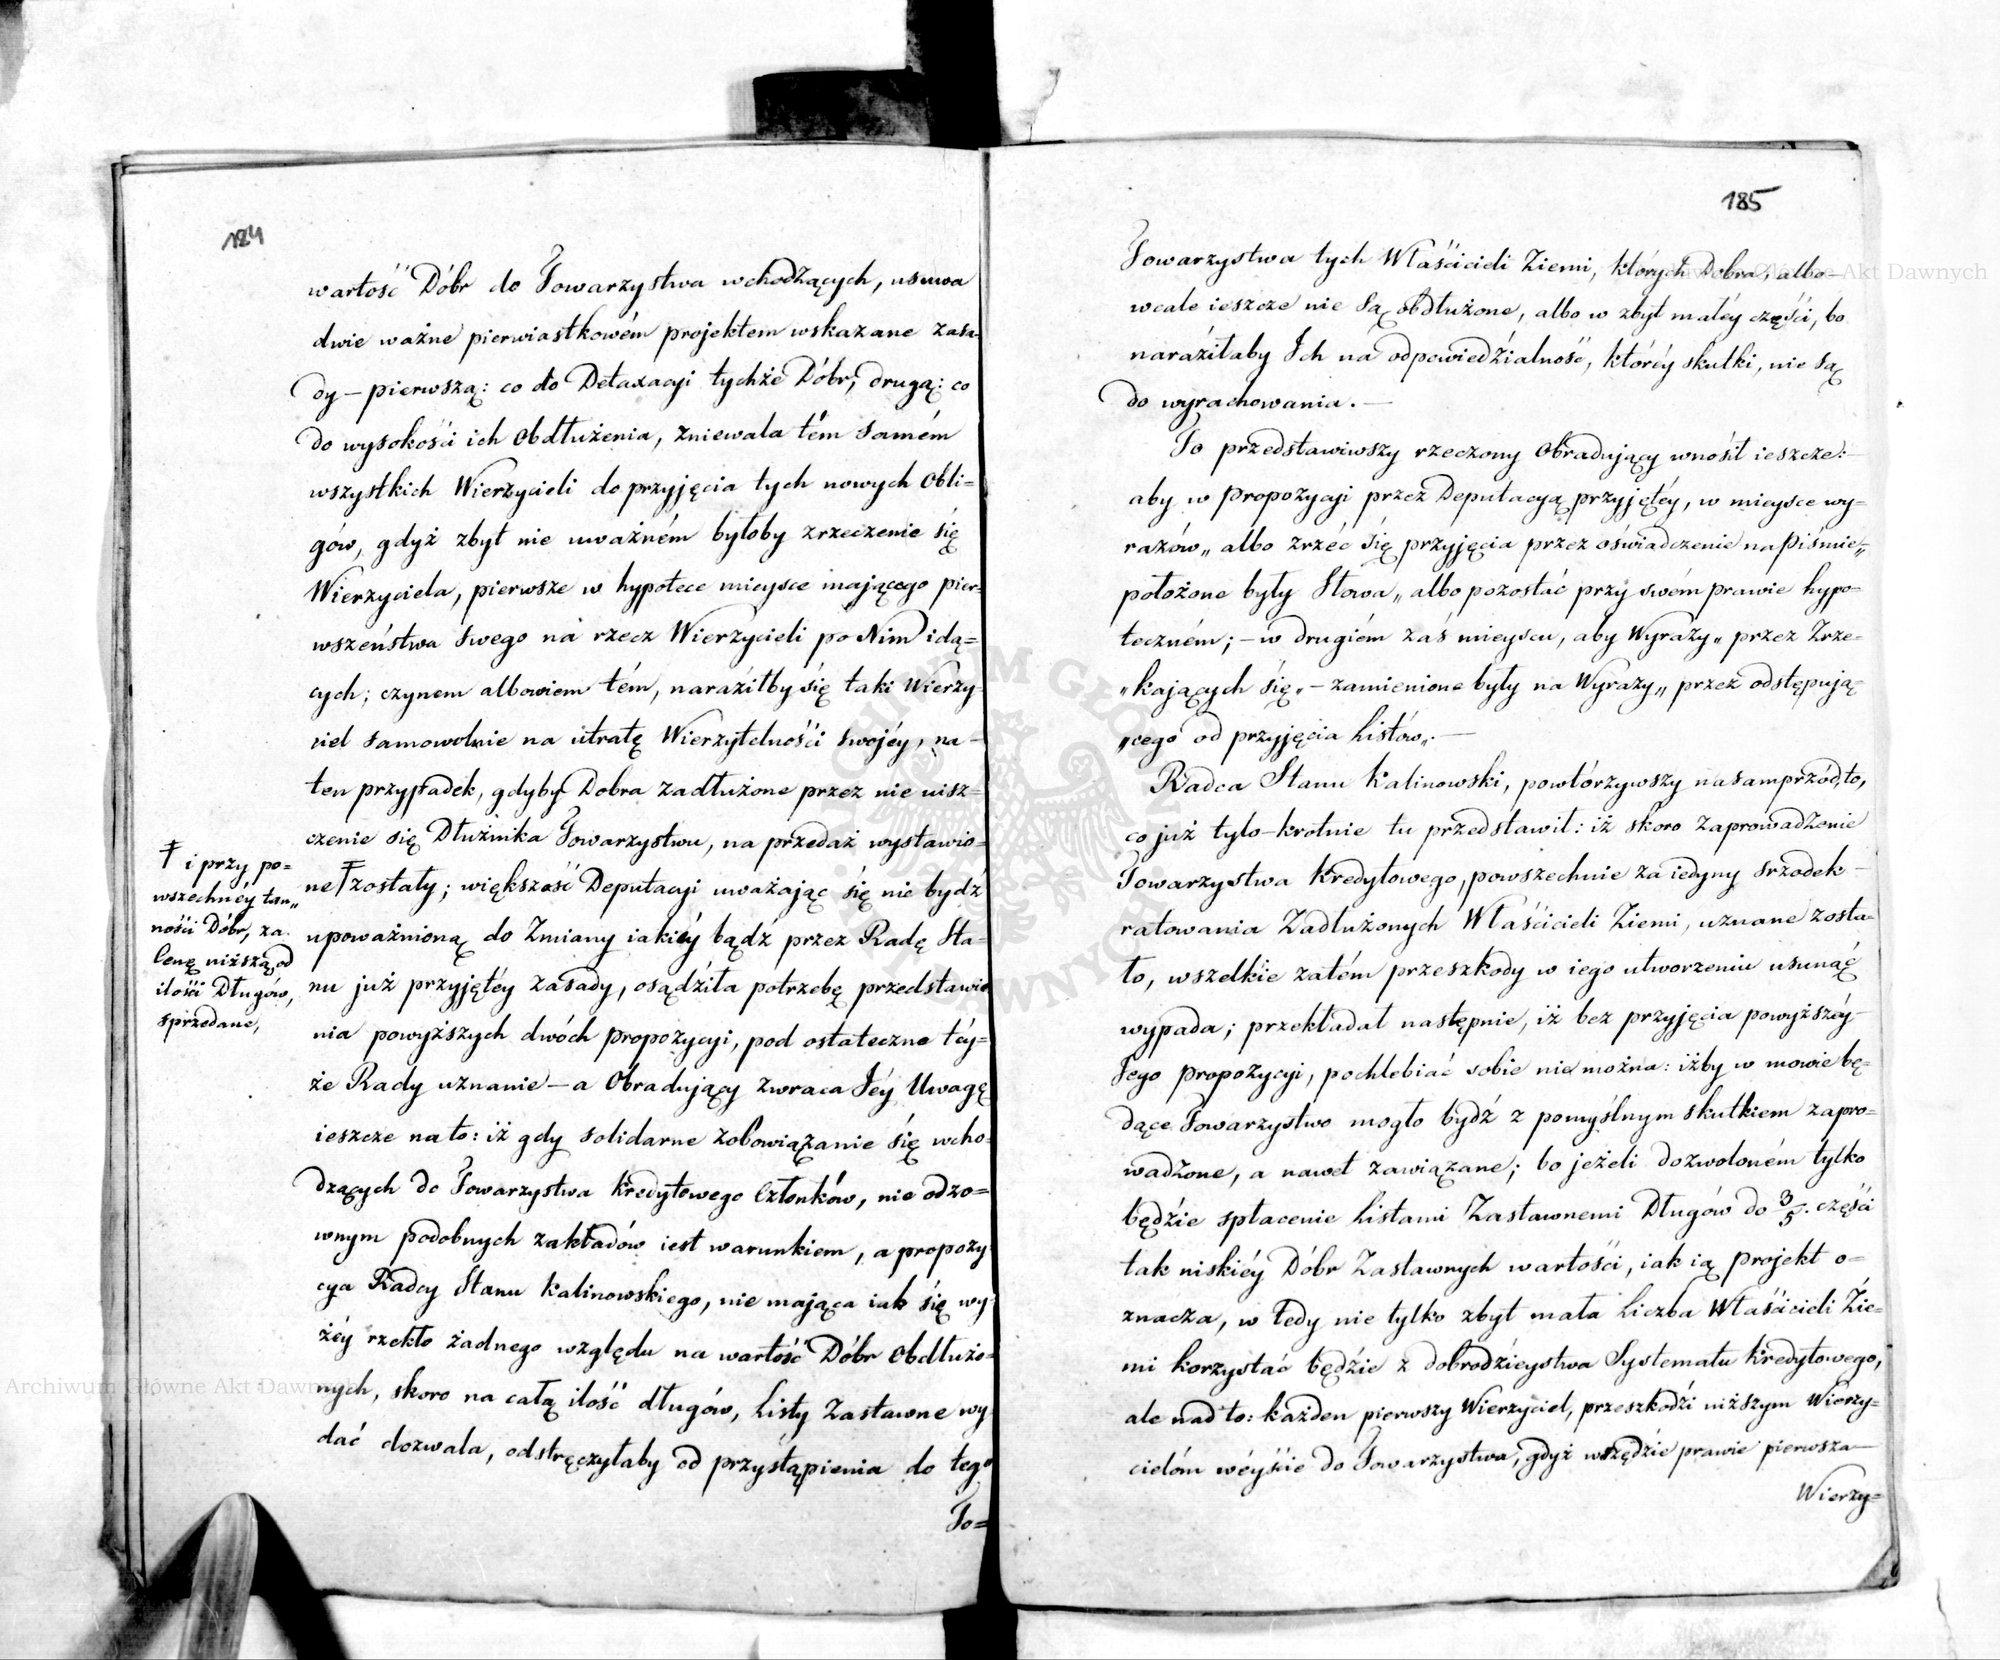 184
wartość Dóbr do Towarzystwa wchodzących, usuwa
dwie ważne pierwiastkowém projektem wskazane zasa-
dy – pierwszą: co do Detaxacyi tychże Dóbr, drugą: co
do wysokości ich obdłużenia, zniewala tém samém
wszystkich Wierzycieli do przyjęcia tych nowych Obli=
gów, gdyż zbyt nie uważném byłoby zrzeczenie się
Wierzyciela, pierwsze w hypotece mieysce mającego pier-
wszeństwa swego na rzecz Wierzycieli po Nim idą=
cych; czynem albowiem tém, naraziłby się taki Wierzy-
ciel samowolnie na utratę Wierzytelności swojéy, na –
ten przypadek, gdyby Dobra zadłużone przez nie uisz-
czenie się Dłużnika Towarzystwu, na przedaż wystawio=
ne Ŧ zostały; większość Deputacyi uważając się nie bydź
upoważnioną do Zmiany iakiéy bądź przez Radę Sta=
nu już przyjętéy zasady, osądziła potrzebę przedstawie
nia powyższych dwóch propozycyi, pod ostateczne téy=
że Rady uznanie – a Obradujący zwraca Jéy Uwagę
ieszcze na to: iż gdy solidarne zobowiązanie się wcho-
dzących do Towarzystwa Kredytowego Członków, nie odzo=
wnym podobnych zakładów iest warunkiem, a propozy-
cya Radcy Stanu Kalinowskiego, nie mająca iak się wy-
żéy rzekło żadnego względu na wartość Dóbr obdłużo=
nych, skoro na całą ilość długów, Listy Zastawne wy-
dać dozwala, odstręczyłaby od przystąpienia do tego
To=
Ŧ i przy po=
wszechnéy tan„
ności Dóbr, za
Cenę niższą od
ilości Długów,
sprzedane,
185
Towarzystwa tych Właścicieli Ziemi, których Dobra, albo –
wcale ieszcze nie są obdłużone, albo w zbyt małéy części, bo
naraziłaby Ich na odpowiedzialność, któréy skutki, nie są
do wyrachowania. –
To przedstawiwszy rzeczony Obradujący wnosił ieszcze: –
aby w Propozycyi przez Deputacyą przyjętéy, w mieysce wy=
razów „ albo zrzéc się przyjęcia przez oświadczenie na piśmie„
położone były Słowa „ albo pozostać przy swém prawie hypo=
teczném; – w drugiém zaś mieyscu, aby Wyrazy „ przez Zrze=
„kających się„ – zamienione były na Wyrazy „ przez odstępują=
„cego od przyjęcia Listów„. –
Radca Stanu Kalinowski, powtórzywszy nasamprzód, to,
co już tylo-krotnie tu przedstawił: iż skoro Zaprowadzenie
Towarzystwa Kredytowego, powszechnie za iedyny srzodek –
ratowania Zadłużonych Właścicieli Ziemi, uznane zosta=
ło, wszelkie zatém przeszkody w iego utworzeniu usunąć
wypada; przekładał następnie, iż bez przyjęcia powyższéy –
Jego propozycyi, pochlebiać sobie nie można: iżby w mowie bę=
dące Towarzystwo mogło bydź z pomyślnym skutkiem zapro=
wadzone, a nawet zawiązane; bo jeżeli dozwoloném tylko
będzie spłacenie Listami Zastawnemi Długów do 3/5. części
tak niskiéy Dóbr Zastawnych wartości, iak ią projekt o=
znacza, w tedy nie tylko zbyt mała Liczba Właścicieli Zie=
mi korzystać będzie z dobrodzieystwa Systematu Kredytowego,
ale nad to: każden pierwszy Wierzyciel, przeszkodzi niższym Wierzy=
cielóm wéyście do Towarzystwa, gdyż wszędzie prawie pierwsza –
Wierzy=